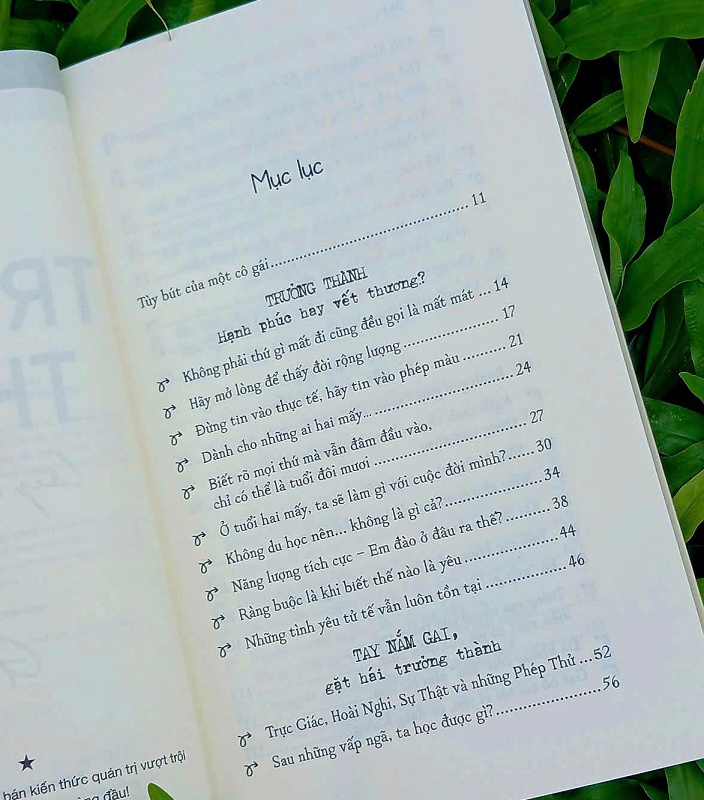 Mục lục
Tùy bút của một cô gái........................................ 11
TRƯỞNG THÀNH
Hạnh phúc hay vết thương?
Không phải thứ gì mất đi cũng đều gọi là mất mát ... 14
Hãy mở lòng để thấy đời rộng lượng .................... 17
Đừng tin vào thực tế, hãy tin vào phép màu ......... 21
Dành cho những ai hai mấy... ............................. 24
Biết rõ mọi thứ mà vẫn đâm đầu vào,
chỉ có thể là tuổi đôi mươi ................................. 27
Ở tuổi hai mấy, ta sẽ làm gì với cuộc đời mình?...... 30
Không du học nên... không là gì cả?.................... 34
Năng lượng tích cực – Em đào ở đâu ra thế? ......... 38
Ràng buộc là khi biết thế nào là yêu .................... 44
Những tình yêu tử tế vẫn luôn tồn tại .................. 46
TAY NẮM GAI,
gặt hái trưởng thành
Trực Giác, Hoài Nghi, Sự Thật và những Phép Thử ... 52
Sau những vấp ngã, ta học được gì?..................... 56
bán kiến thức quản trị vượt trội
đầu!